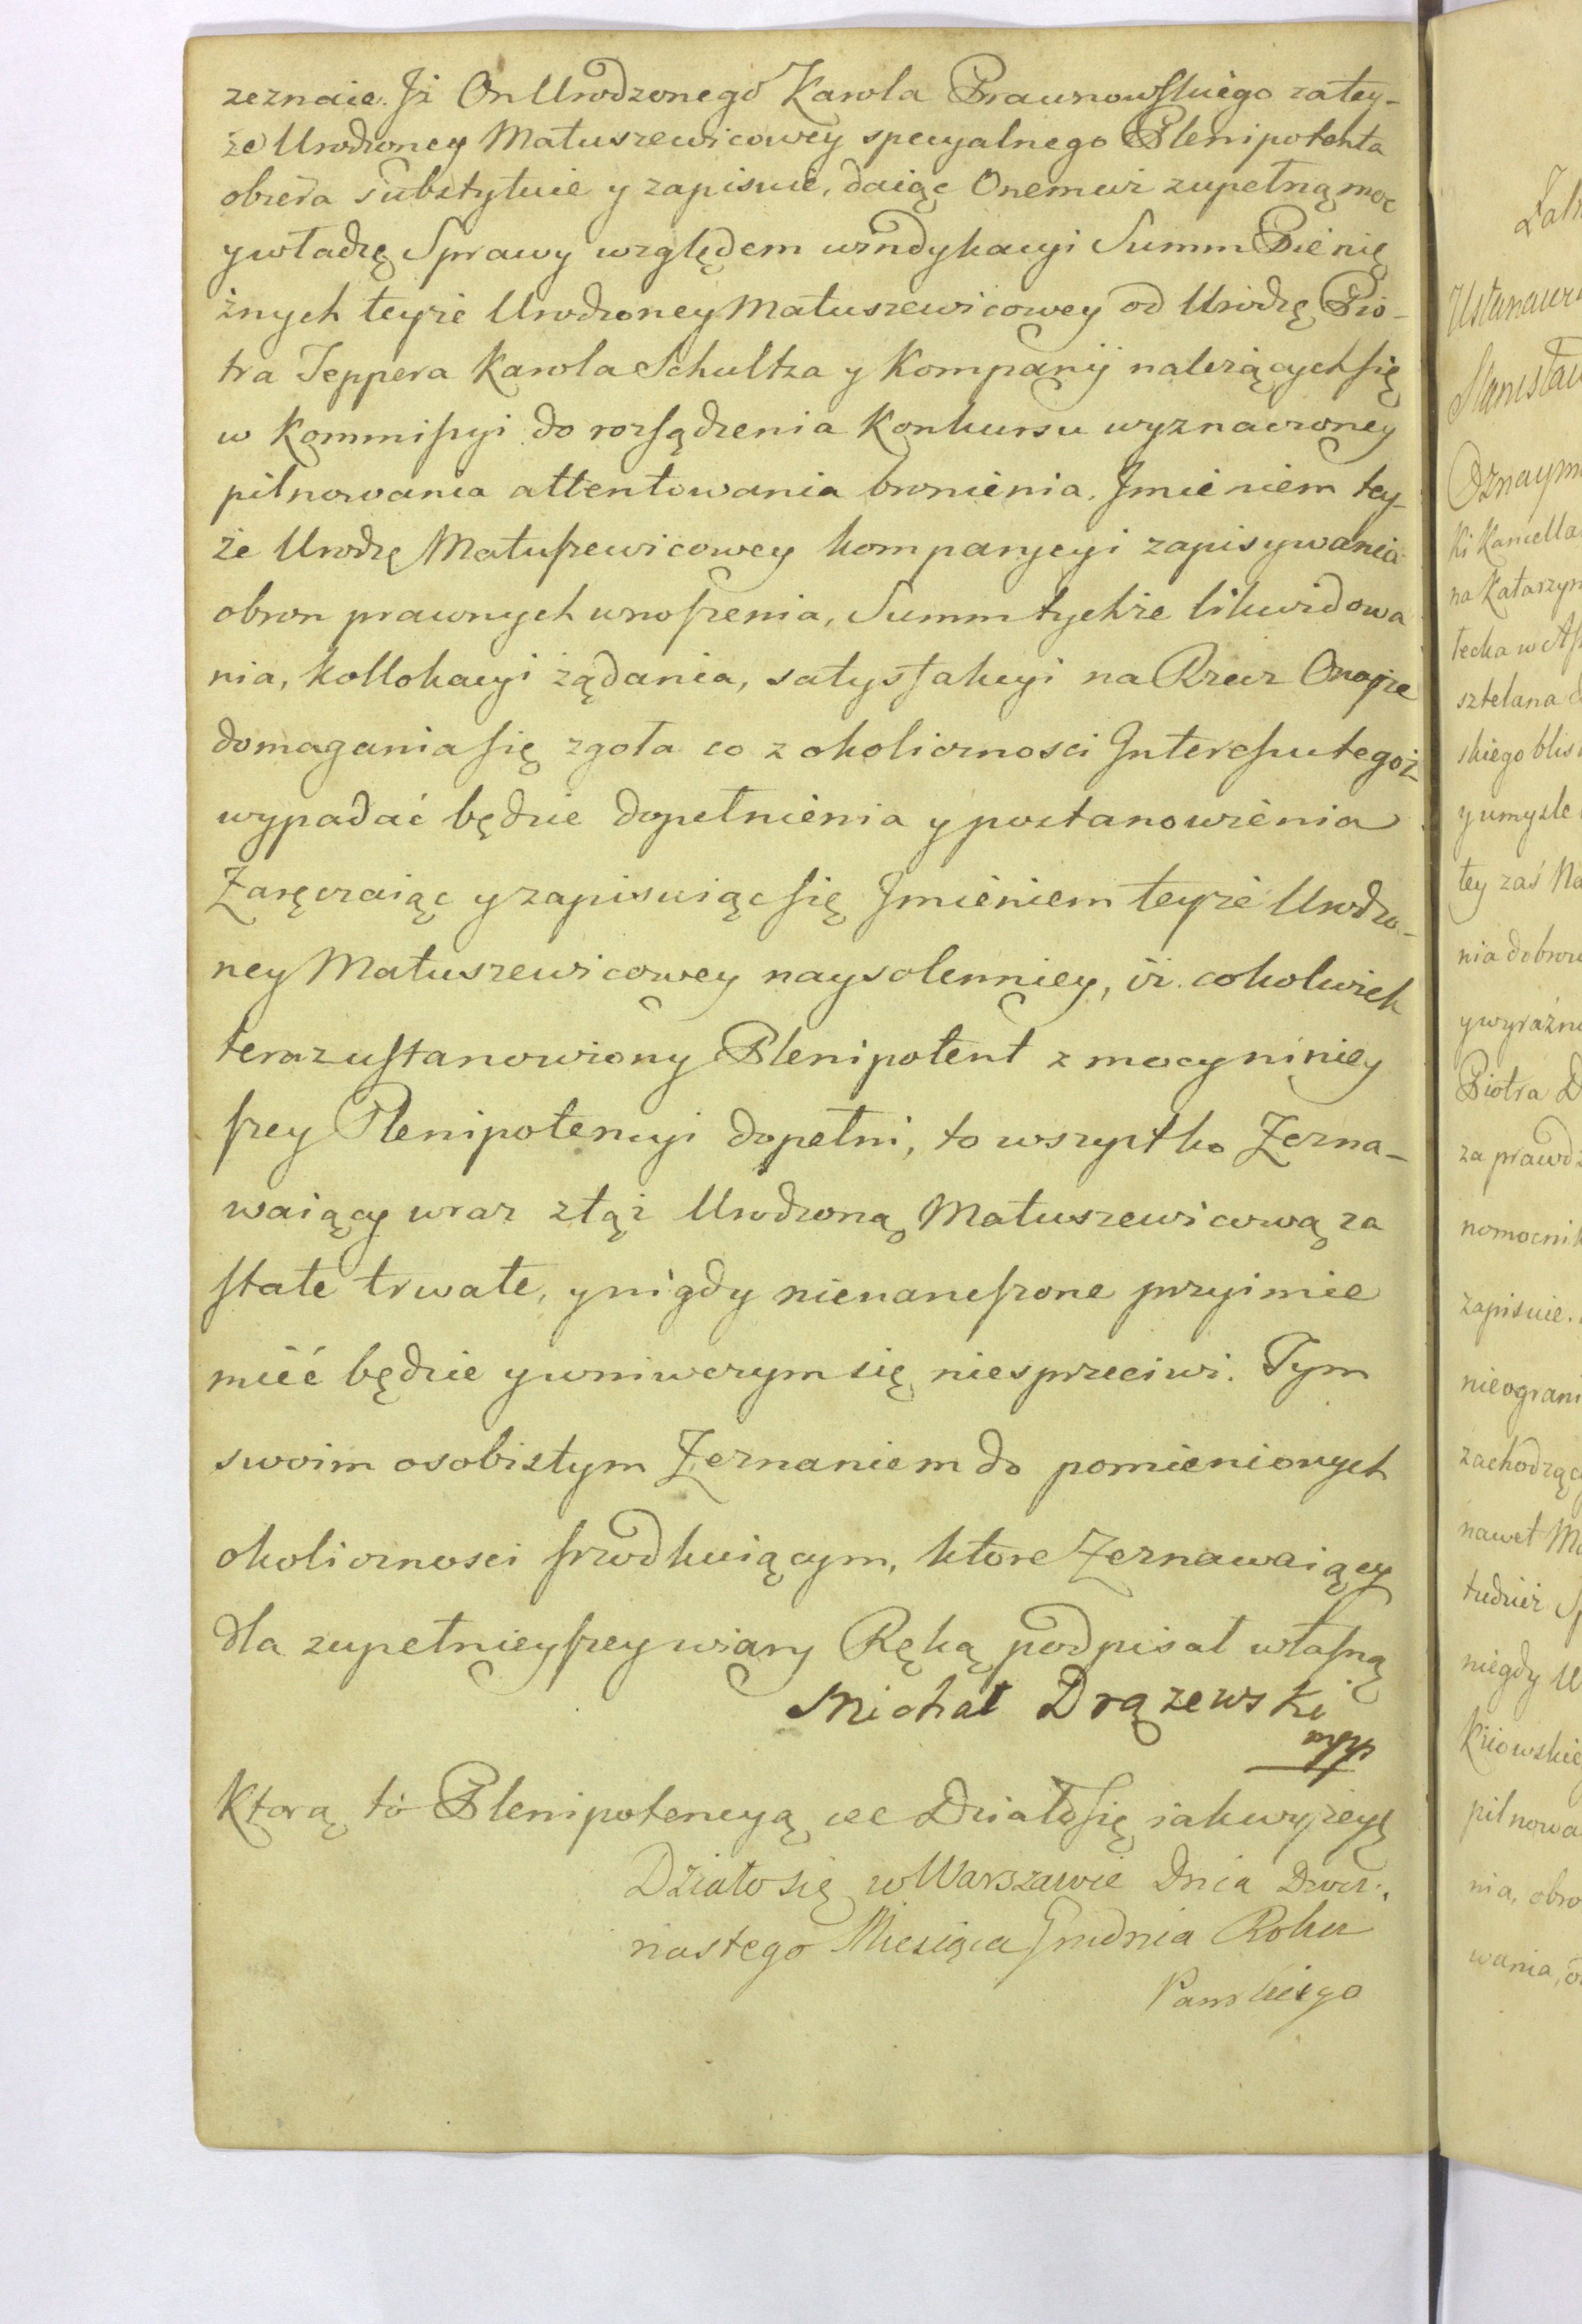 zeznaie. Iż On Urodzonego Karola Braunowskiego za tey-
że Urodzoney Matuszewicowey specyalnego Plenipotenta
obiera substytuie y zapisuie, daiąc Onemuż zupełną moc
y władzę Sprawy względem windykacyi Summ Pienię
żnych teyże Urodzoney Matuszewicowey od Urodzę Pio-
tra Teppera Karola Schultza y Kompanij należących się
w Kommissyi do rozsądzenia Konkursu wyznaczoney
pilnowania attentowania bronienia. Imieniem tey-
że Urodzę Matuszewicowey komparycyi zapisywania
obron prawnych wnoszenia, Summ tychże likwidowa
nia, kollokacyi żądania, satysfakcyi na Rzecz Oneyże
domagania się zgoła co z okoliczności Interessu tegoż
wypadać będzie dopełnienia y postanowienia
Zaręczaiąc y zapisuiąc się Imieniem teyże Urodzo-
ney Matuszewicowey naysolenniey, iż cokolwiek
teraz ustanowiony Plenipotent z mocy niniey
szey Plenipotencyi dopełni, to wszystko Zezna-
waiący wraz z tąż Urodzoną Matuszewicową za
stałe trwałe, y nigdy nienaruszone przyimie
mieć będzie y w niwczym się niesprzeciwi. Tym
swoim osobistym Zeznaniem do pomienionych
okoliczności szrodkuiącym, ktore Zeznawaiący
dla zupełnieyszey wiary Ręką podpisał własną
Michał Drązewski
mpp
Ktorą to Plenipotencyą etc Działo się iak wyżey
Działo się w Warszawie Dnia Dwu-
nastego Miesiąca Grudnia Roku
Pańskiego
Ustanawi
Stanisław
Oznaym
ki Kancella
na Katarzyn
sztelana
skiego blis
y umysle
tey zaś Na
nia dobrow
y wyraźn
Piotra D
za prawdz
nomocnik
zapisuie.
nieograni
zachodząc
nawet M
tudzież Sp
niegdy U
Kiiowskie
pilnowa
nia, obro
wania, o